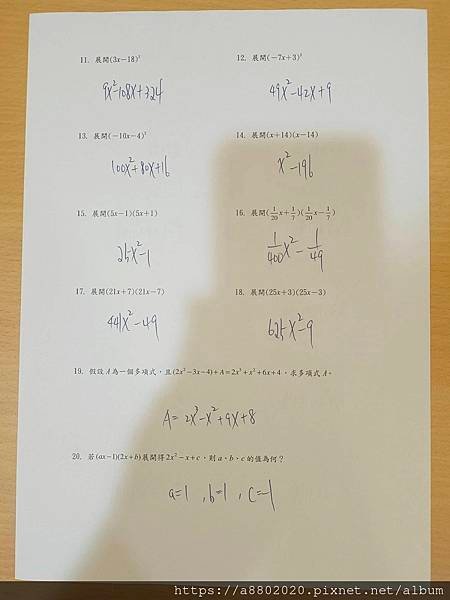 11. 展開(3x−18)²
12. 展開(−7x+3)²
9x²-108x+324
49x²-42x+9
13. 展開(−10x−4)²
14. 展開(x+14)(x−14)
100x²+80x+16
x²-196
15. 展開(5x−1)(5x+1)
16. 展開(1/20x+1/7)(1/20x−1/7)
25x²-1
1/400x²-1/49
17. 展開(21x+7)(21x−7)
18. 展開(25x+3)(25x−3)
441x²-49
625x²-9
19. 假設A為一個多項式,且(2x²−3x−4)+A=2x³+x²+6x+4,求多項式A。
A=2x³-x²+9x+8
20. 若(ax−1)(2x+b)展開得2x²−x+c,則a、b、c的值為何?
a=1 , b=1 , c=-1
https://a8802020.pixnet.net/album